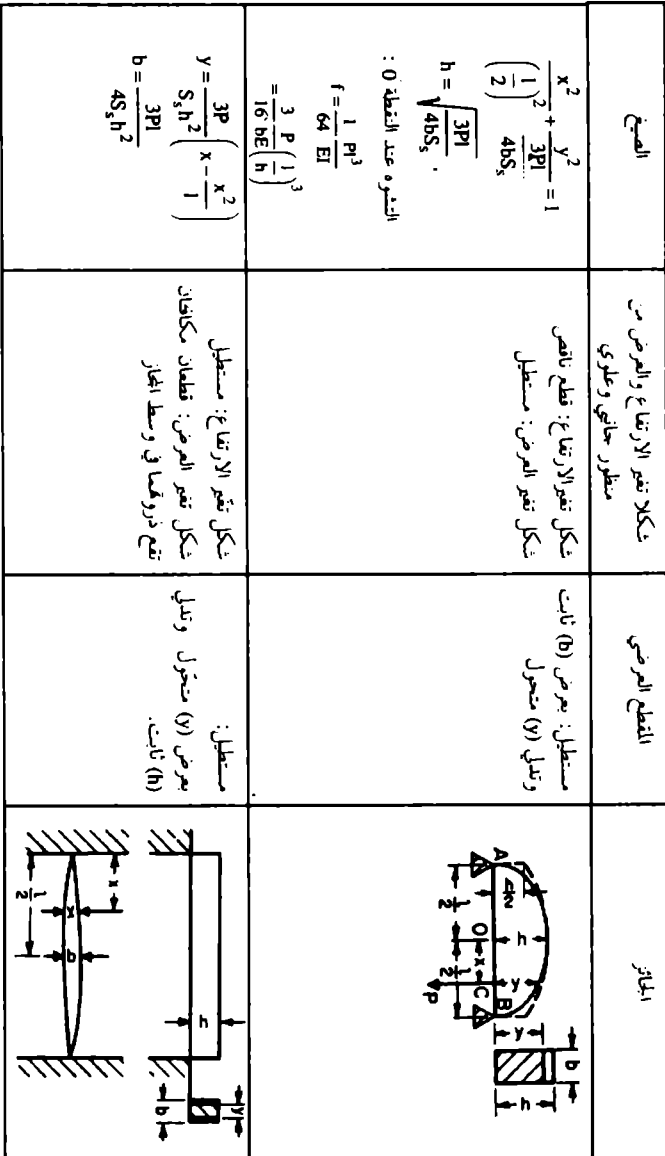 الجائز
المقطع العرضي
شكلا تغير الارتفاع والعرض من
منظور جانبي وعلوي
الصيغ
A
B
O
C
P
x
y
y
h
h
b
h/2
l/2
l/2
مستطيل: بعرض (b) ثابت
وتدلي (y) متحول
شكل تغير الارتفاع: قطع ناقص
شكل تغير العرض: مستطيل
x²/(l/2)² + y²/(3Pl/4bSₛ) = 1
h = √(3Pl/4bSₛ)
التشوه عند النقطة O :
f = 1/64 Pl³/EI
= 3/16 P/bE (l/h)³
h
y
b
x
l/2
y
b
مستطيل:
بعرض (y) متحول وتدلي
(h) ثابت.
شكل تغير الارتفاع: مستطيل
شكل تغير العرض: قطعان مكافئان
تقع ذروتهما في وسط المجاز
y = 3P/Sₛh² (x - x²/l)
b = 3Pl/4Sₛh²